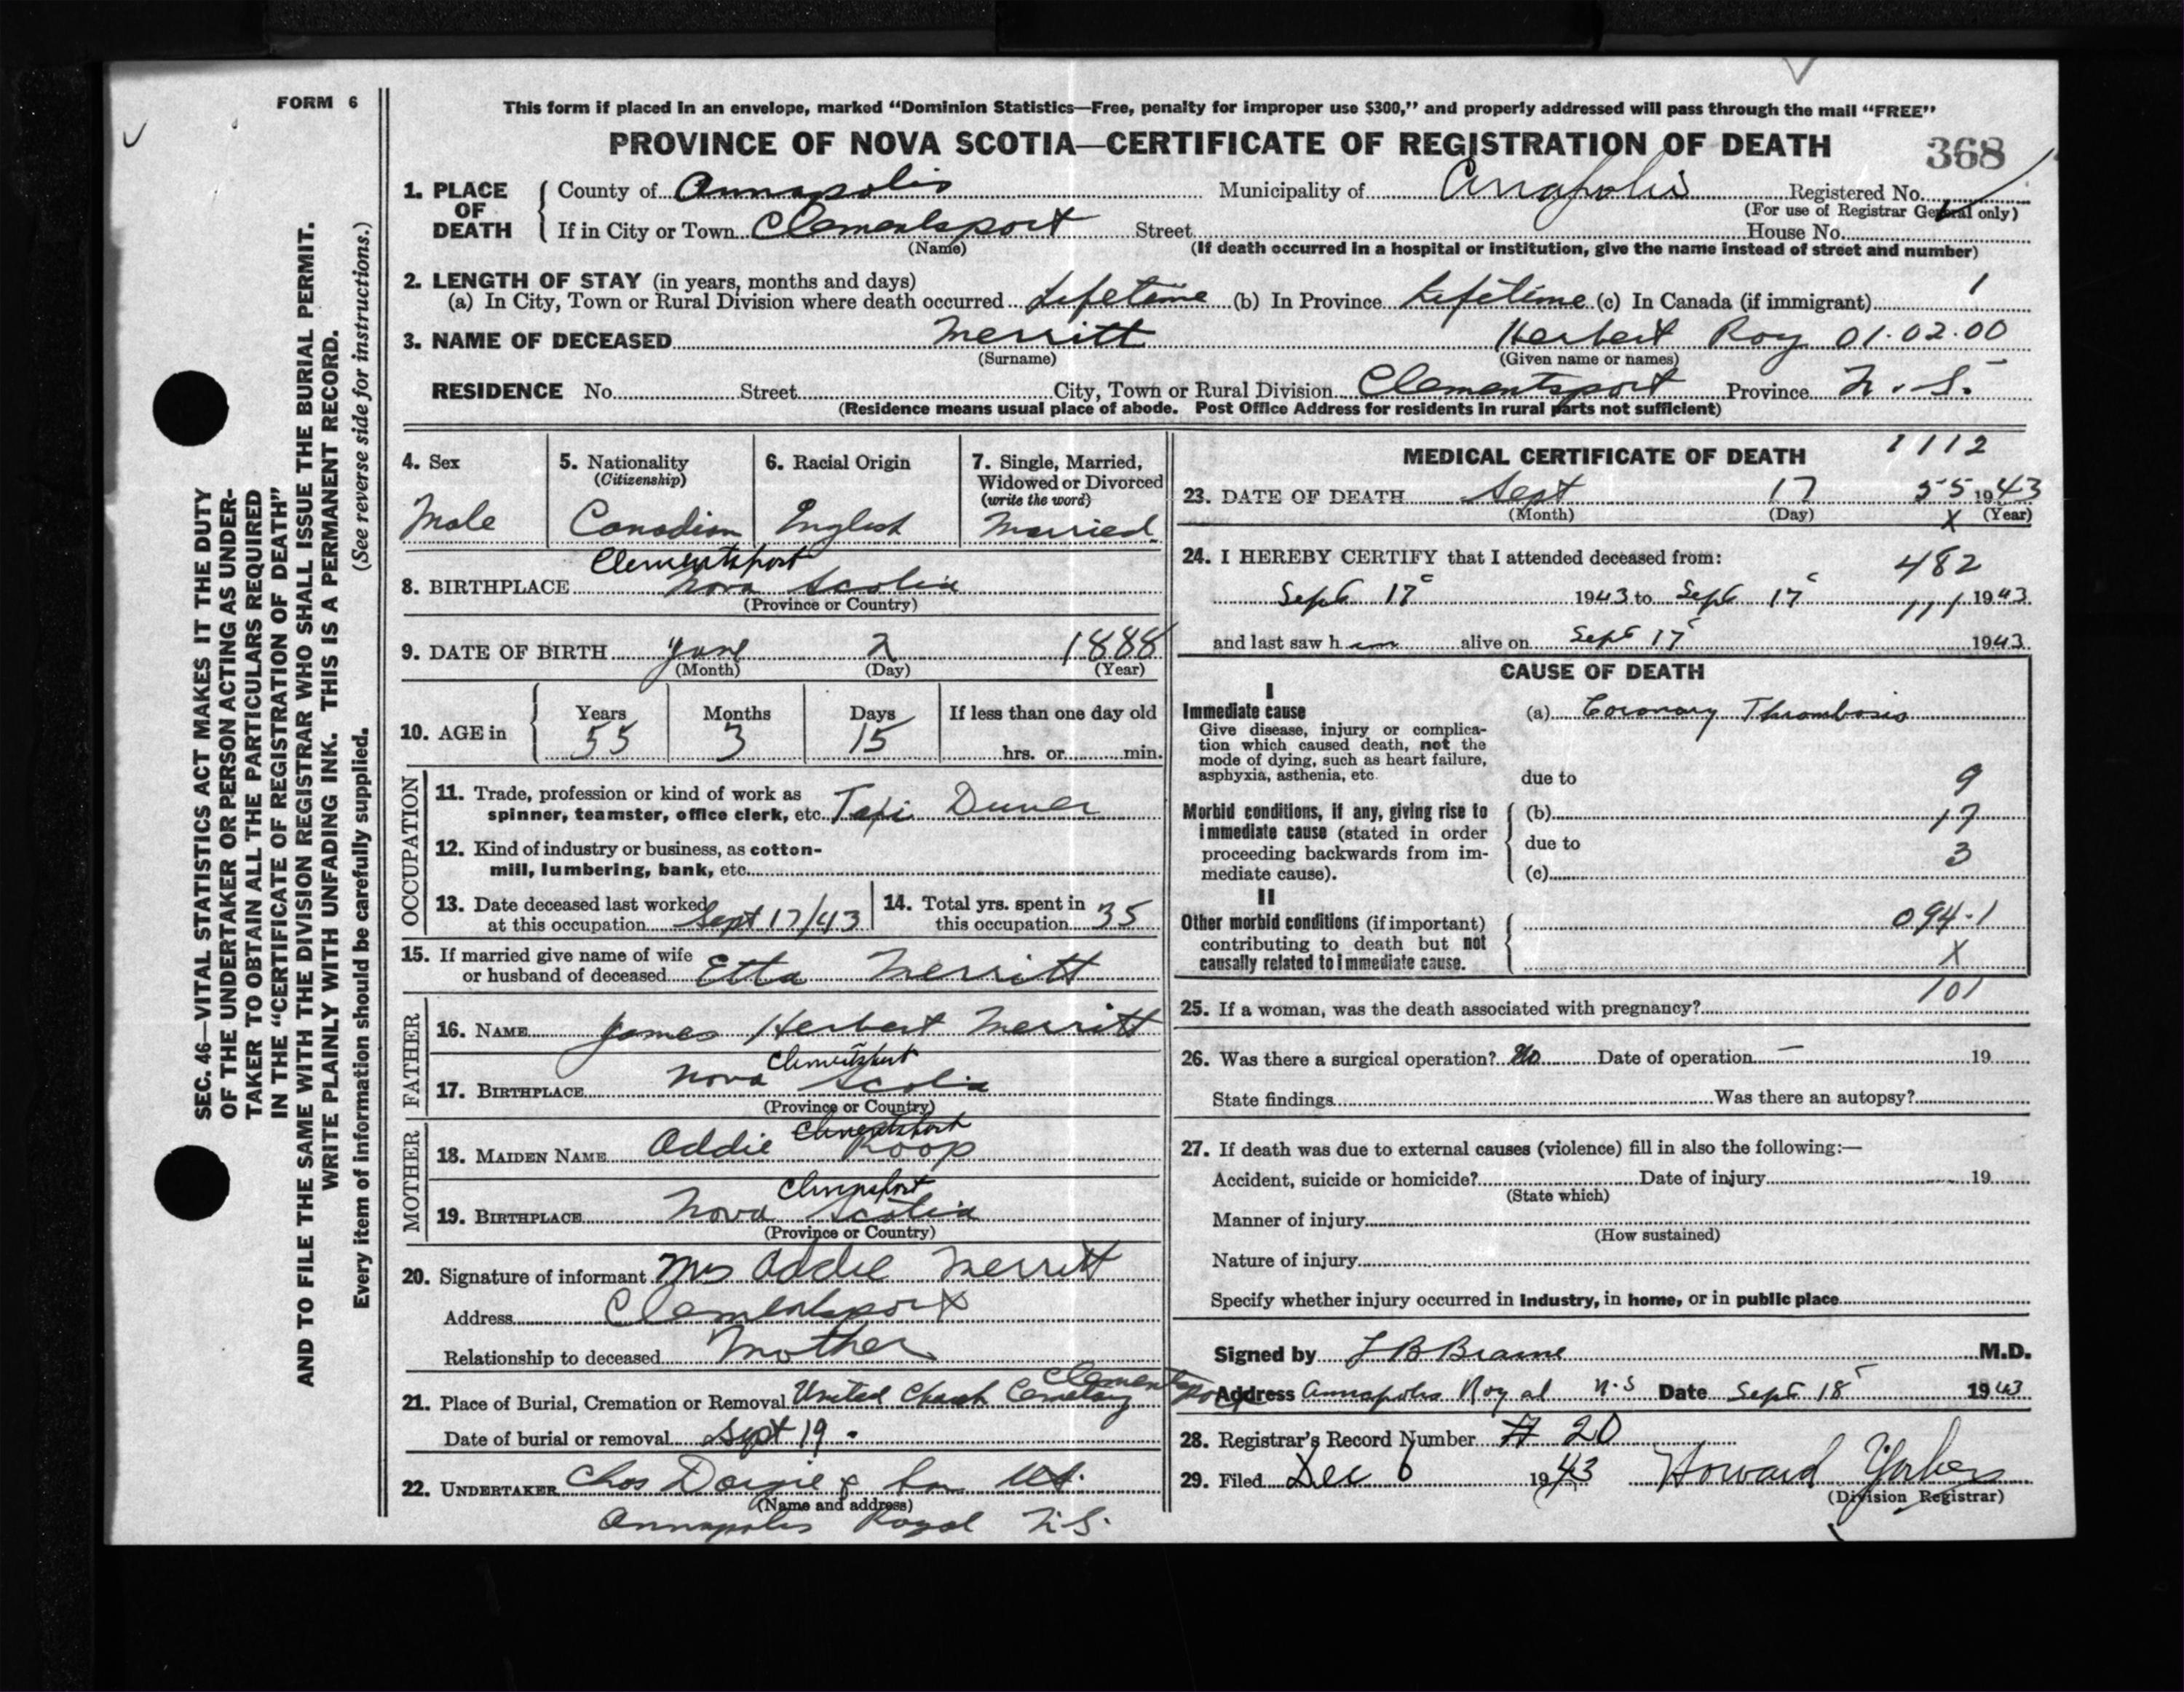 FORM 6
This form if placed in an envelope, marked “Dominion Statistics—Free, penalty for improper use $300,” and properly addressed will pass through the mail “FREE”
PROVINCE OF NOVA SCOTIA—CERTIFICATE OF REGISTRATION OF DEATH
368
1. PLACE OF DEATH
County of Annapolis Municipality of Annapolis Registered No.
(For use of Registrar General only)
If in City or Town Clementsport Street House No.
(Name) (If death occurred in a hospital or institution, give the name instead of street and number)
2. LENGTH OF STAY (in years, months and days)
(a) In City, Town or Rural Division where death occurred Lifetime (b) In Province Lifetime (c) In Canada (if immigrant) 1
3. NAME OF DECEASED Merritt Herbert Roy 01.02.00
(Surname) (Given name or names)
RESIDENCE No. Street City, Town or Rural Division Clementsport Province N.S.
(Residence means usual place of abode. Post Office Address for residents in rural parts not sufficient)
4. Sex
Male
5. Nationality
(Citizenship)
Canadian
6. Racial Origin
English
7. Single, Married,
Widowed or Divorced
(write the word)
Married
Clementsport
8. BIRTHPLACE Nova Scotia
(Province or Country)
9. DATE OF BIRTH June 2 1888
(Month) (Day) (Year)
10. AGE in
Years Months Days If less than one day old
55 3 15 hrs. or min.
OCCUPATION
11. Trade, profession or kind of work as
spinner, teamster, office clerk, etc. Taxi Driver
12. Kind of industry or business, as cotton-
mill, lumbering, bank, etc.
13. Date deceased last worked
at this occupation Sept 17/43
14. Total yrs. spent in
this occupation 35
15. If married give name of wife
or husband of deceased Etta Merritt
FATHER
16. NAME James Herbert Merritt
Clementsport
17. BIRTHPLACE Nova Scotia
(Province or Country)
MOTHER
Clementsport
18. MAIDEN NAME Addie Roop
Clementsport
19. BIRTHPLACE Nova Scotia
(Province or Country)
20. Signature of informant Mrs Addie Merritt
Address Clementsport
Relationship to deceased Mother
21. Place of Burial, Cremation or Removal United Church Cemetery Clementsport
Date of burial or removal Sept 19
22. UNDERTAKER Chas Dargie & Son Lt.
(Name and address)
Annapolis Royal N.S.
MEDICAL CERTIFICATE OF DEATH
1112
23. DATE OF DEATH Sept 17 55 1943
(Month) (Day) X (Year)
24. I HEREBY CERTIFY that I attended deceased from:
482
Sept 17 1943 to Sept 17 111 1943
and last saw him alive on Sept 17 1943
CAUSE OF DEATH
I
Immediate cause
Give disease, injury or complica-
tion which caused death, not the
mode of dying, such as heart failure,
asphyxia, asthenia, etc.
(a) Coronary Thrombosis
due to 9
Morbid conditions, if any, giving rise to
immediate cause (stated in order
proceeding backwards from im-
mediate cause).
(b) 17
due to 3
(c)
II
Other morbid conditions (if important)
contributing to death but not
causally related to immediate cause.
094.1
X
101
25. If a woman, was the death associated with pregnancy?
26. Was there a surgical operation? No Date of operation — 19
State findings Was there an autopsy?
27. If death was due to external causes (violence) fill in also the following:—
Accident, suicide or homicide? Date of injury 19
(State which)
Manner of injury
(How sustained)
Nature of injury
Specify whether injury occurred in industry, in home, or in public place
Signed by L B Braine M.D.
Address Annapolis Royal N.S Date Sept 18 1943
28. Registrar's Record Number # 20
29. Filed Dec 6 1943 Howard
(Division Registrar)
SEC. 46—VITAL STATISTICS ACT MAKES IT THE DUTY
OF THE UNDERTAKER OR PERSON ACTING AS UNDER-
TAKER TO OBTAIN ALL THE PARTICULARS REQUIRED
IN THE “CERTIFICATE OF REGISTRATION OF DEATH”
AND TO FILE THE SAME WITH THE DIVISION REGISTRAR WHO SHALL ISSUE THE BURIAL PERMIT.
WRITE PLAINLY WITH UNFADING INK. THIS IS A PERMANENT RECORD.
Every item of information should be carefully supplied. (See reverse side for instructions.)